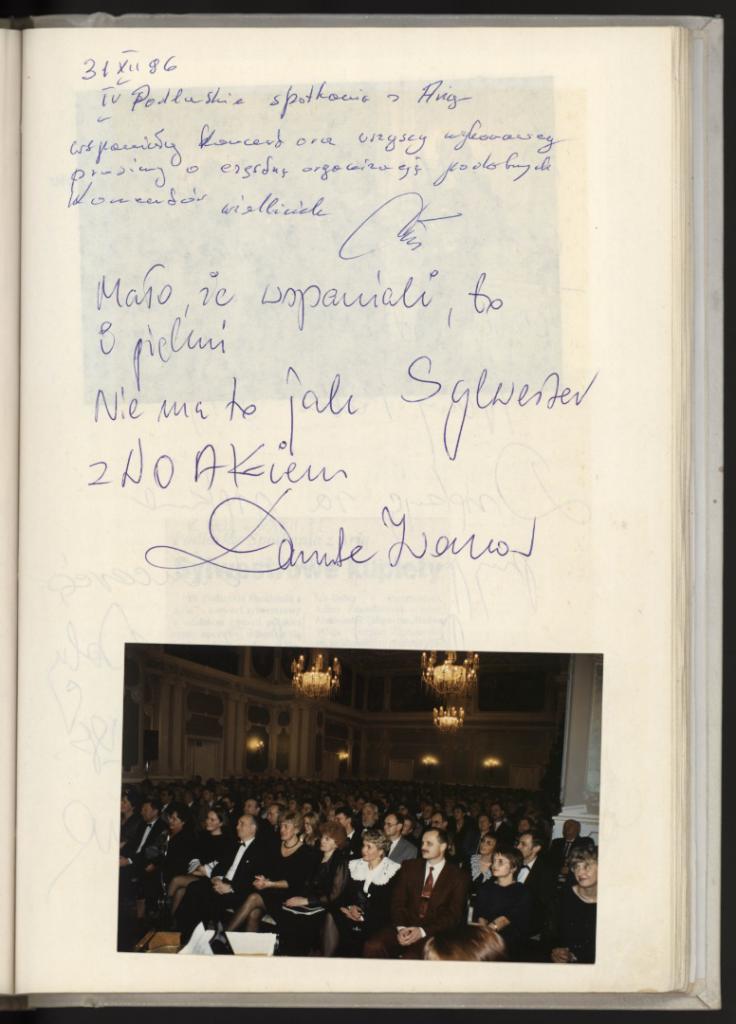 31 XII 96
IV Podlaskie spotkania z Arią
wspaniały koncert oraz wszyscy wykonawcy
prosimy o organizację podobnych
koncertów
Mało, że wspaniali, to
i piękni
Nie ma to jak Sylwester
z NOAKiem
Danuta